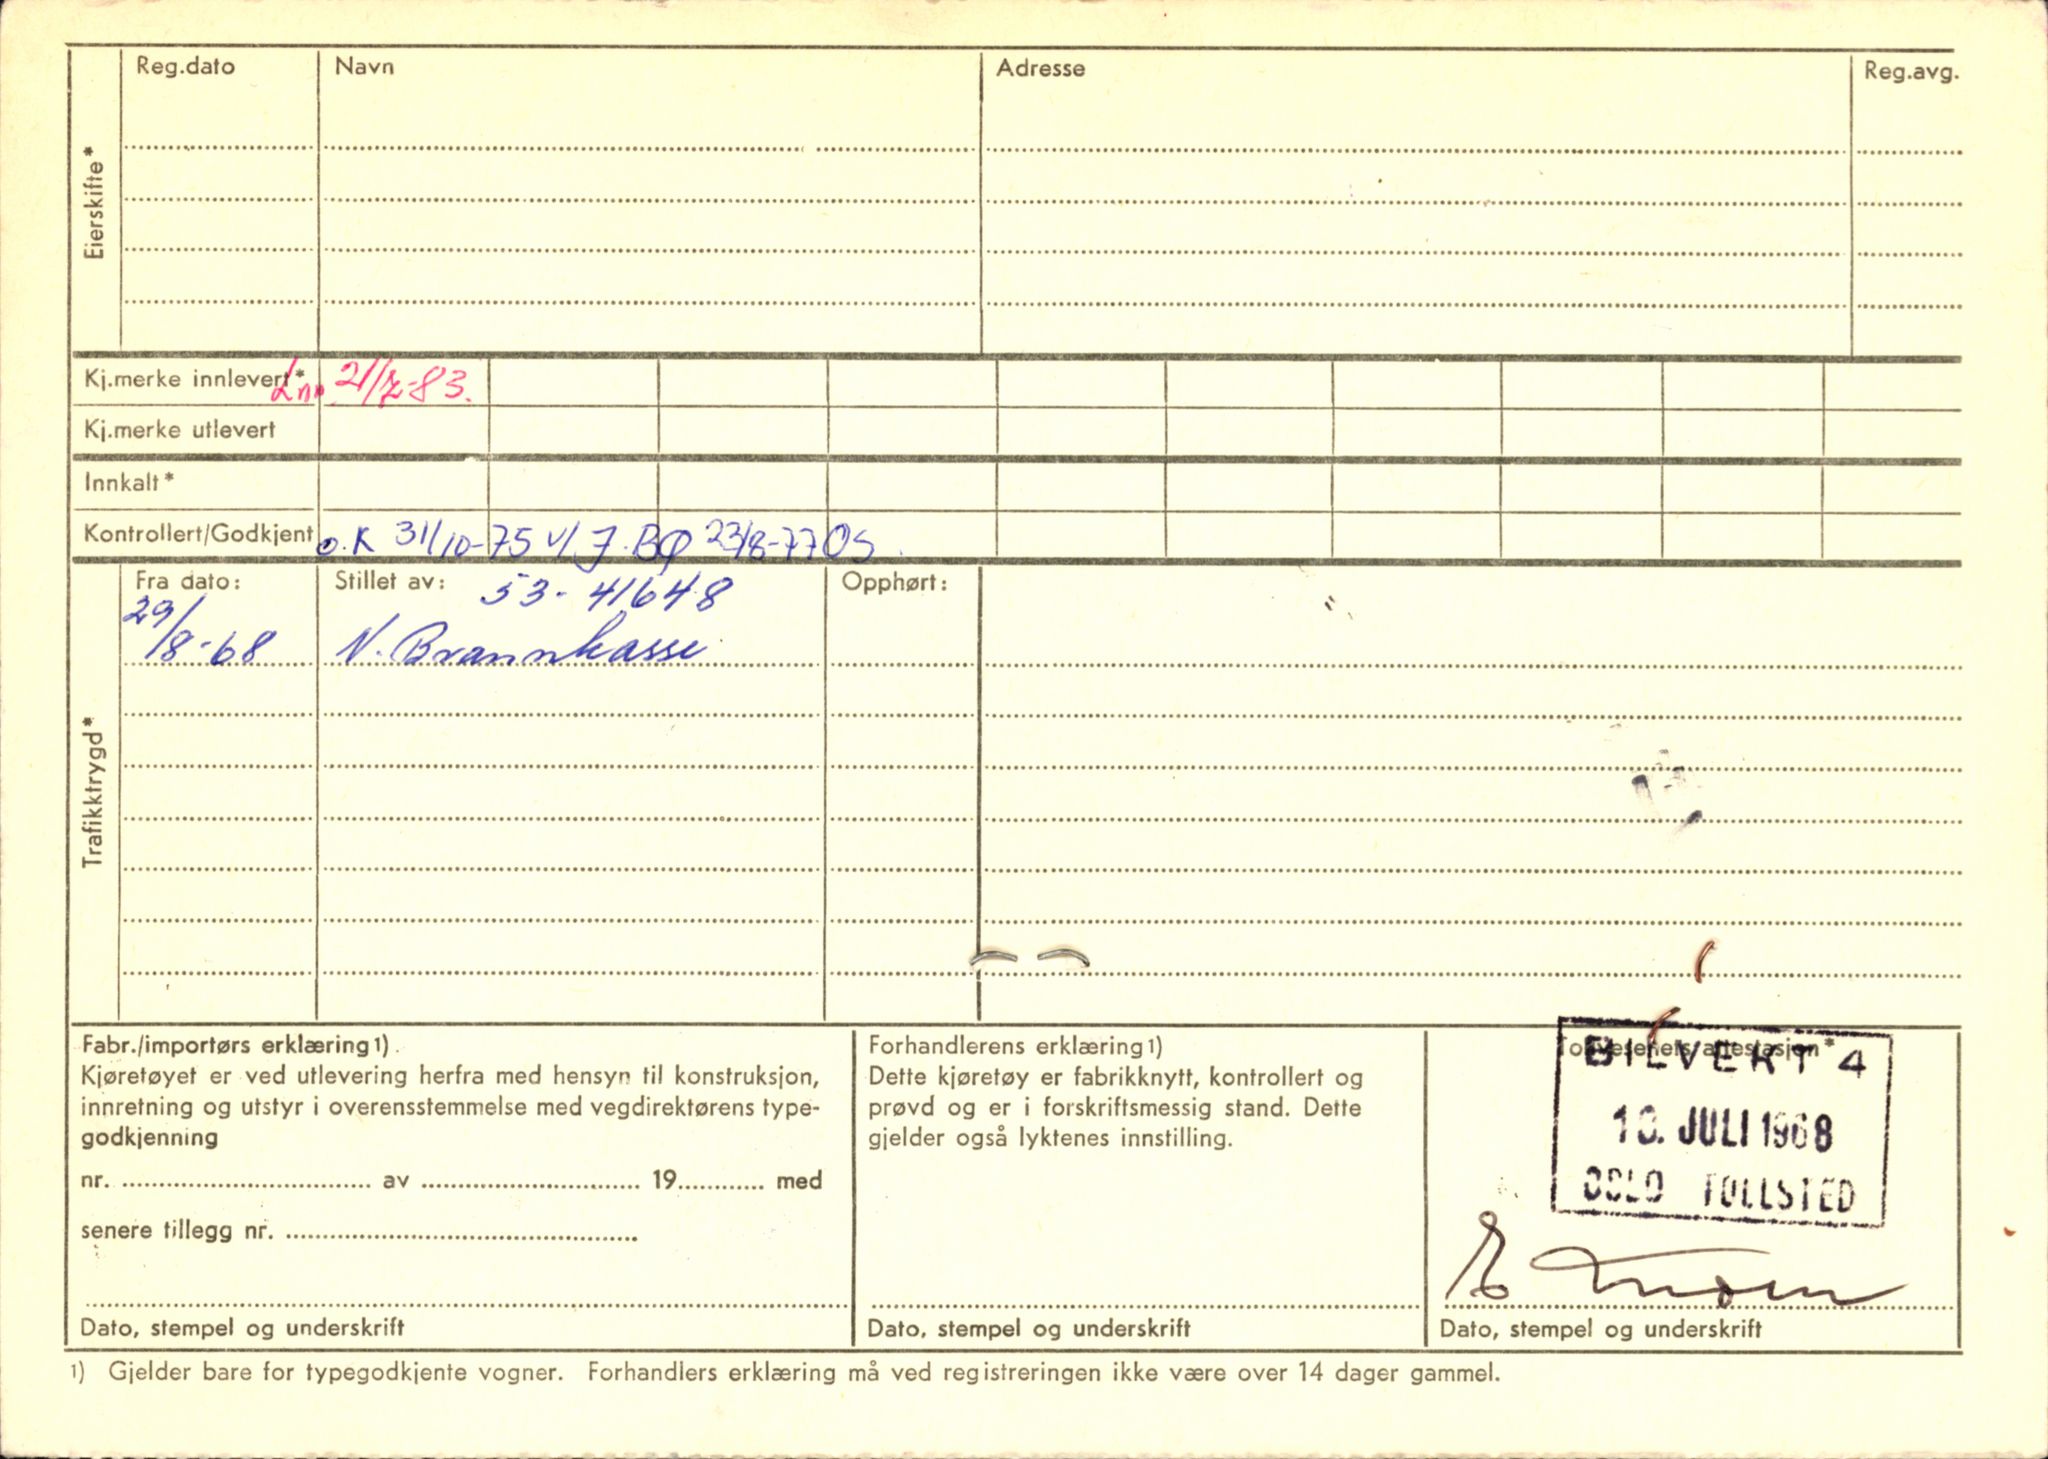 Reg.dato Navn Adresse Reg.avg.
Eierskifte*
Kj.merke innlevert* 21/7-83.
Kj.merke utlevert
Innkalt*
Kontrollert/Godkjent o.K 31/10-75 v/ J.BØ 23/8-77 OS.
Trafikktrygd*
Fra dato: Stillet av: 53-41648 Opphørt:
29/8-68 N. Brannkasse
Fabr./importørs erklæring1).
Kjøretøyet er ved utlevering herfra med hensyn til konstruksjon,
innretning og utstyr i overensstemmelse med vegdirektørens type-
godkjenning
nr. .................... av .................... 19............ med
senere tillegg nr. ....................
Dato, stempel og underskrift
Forhandlerens erklæring1)
Dette kjøretøy er fabrikknytt, kontrollert og
prøvd og er i forskriftsmessig stand. Dette
gjelder også lyktenes innstilling.
Dato, stempel og underskrift
Tollvesenets attestasjon*
BILVERT 4
10. JULI 1968
OSLO TOLLSTED
Dato, stempel og underskrift
1) Gjelder bare for typegodkjente vogner. Forhandlers erklæring må ved registreringen ikke være over 14 dager gammel.